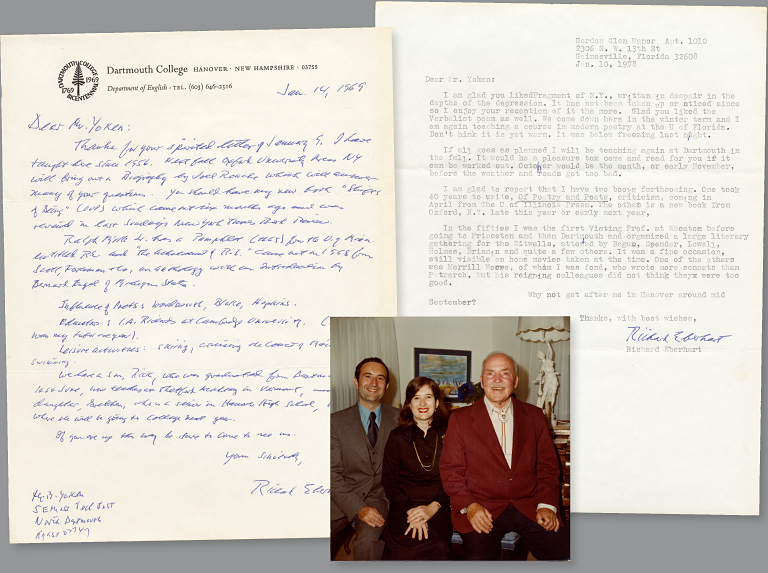 DARTMOUTH COLLEGE
1769
1969
BICENTENNIAL
Dartmouth College HANOVER · NEW HAMPSHIRE · 03755
Department of English · TEL. (603) 646-2316
Jan. 14, 1969
Dear Mr. Yoken:
Thanks for your spirited letter of January 9. I have
taught here since 1956. Next fall Oxford University Press NY
will bring out a Biography by Joel Roache which will answer
many of your questions. You should have my new book "Shifts
of Being" which came out six months ago and was
reviewed in last Sunday's New York Times Book Review.
Ralph Mills Jr. has a Pamphlet
entitled R.E. and "The Achievement of R.E." came out in 1968 from
Scott, Foresman & Co., an anthology with an Introduction by
Bernard Engel of Michigan State.
Influence of Poets: Wordsworth, Blake, Hopkins.
Education: I.A. Richards at Cambridge University. (
was my tutor one year).
Leisure activities: skiing, cruising the coast of
swimming.
We have a son, Rick, who was graduated from
last June, now teaching at Thetford Academy in Vermont,
daughter, Gretchen, who is a senior in Hanover High School,
where she will be going to College next year.
If you are up this way be sure to come to see us.
Yours sincerely,
Richard
Mr. B. Yoken
SE Mass Tech Inst
North Dartmouth
Mass 02747
Apt. 1010
2306 S. W. 13th St
Gainesville, Florida 32608
Jan. 10, 1978
Dear Mr. Yoken:
I am glad you likedFragment of N.Y., written in despair in the
depths of the depression. It has not been taken up or noticed since
so I enjoy your reception of it the more. Glad you liked the
Verbalist poem as well. We come down here in the winter term and I
am again teaching a course in modern poetry at the U of Florida.
Don't think it is yet warm. It was below freezing last night.
If all goes as planned I will be teaching again at Dartmouth in
the fall. It would be a pleasure too come and read for you if it
can be worked out. October would be the month, or early November,
before the weather and roads get too bad.
I am glad to report that I have two books forthcoming. One took
40 years to write, Of Poetry and Poets, criticism, coming in
April from The U of Illinois Press. The other is a new book from
Oxford, N.Y. late this year or early next year,
In the fifties I was the first Visting Prof. at Wheaton before
going to Princeton and then Dartmouth and organized a large literary
gathering for the Sitwells, attended by Bogan, Spender, Lowell,
Holmes, Brinnin and quite a few others. It was a fine occasion,
still visible on home movies taken at the time. One of the others
was Merrill Moore, of whom I was fond, who wrote more sonnets than
Petrarch, but his reigning colleagues did not think they were too
good.
Why not get after me in Hanover around mid
September?
Thanks, with best wishes,
Richard Eberhart
Richard Eberhart